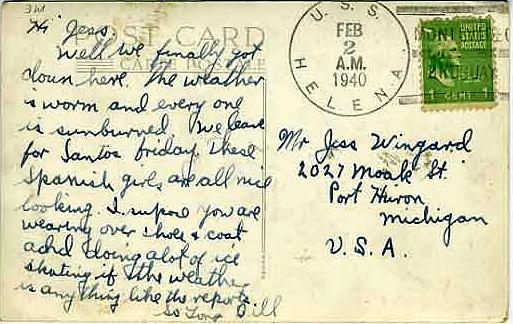 3W
Hi Jess.
POST CARD
CARTE POSTALE
Well we finally got
down here. The weather
is worm and every one
is sunburned. We leave
for Santos friday. These
Spanish girls are all nice
looking. I supose you are
wearing over shoes & coat
and doing alot of ice
skating if the weather
is anything like the reports.
So Long Bill
U.S.S. HELENA
FEB
2
A.M.
1940
UNITED
STATES
POSTAGE
1 CENT 1
MONTEVIDEO
URUGUAY
Mr Jess Wingard
2027 Moak St.
Port Huron
Michigan
U.S.A.